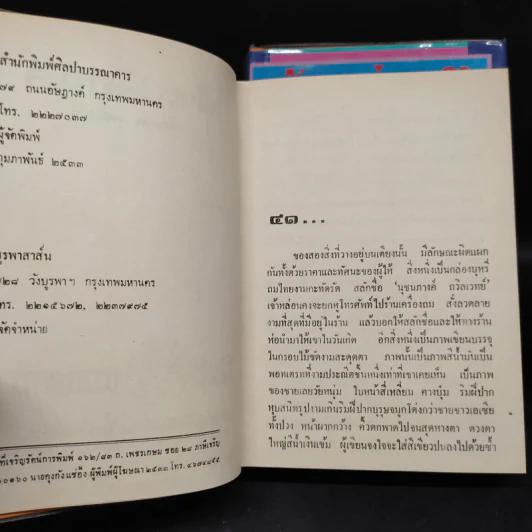 สำนักพิมพ์ศิลปาบรรณาคาร
๗๙ ถนนอัษฎางค์ กรุงเทพมหานคร
โทร. ๒๒๒๗๐๓๗
ผู้จัดพิมพ์
กุมภาพันธ์ ๒๕๓๓
บูรพาสาส์น
๒๘ วังบูรพาฯ กรุงเทพมหานคร
โทร. ๒๒๑๕๖๗๒, ๒๒๓๗๙๗๕
จัดจำหน่าย
ที่เจริญรัตน์การพิมพ์ ๑๖๒/๘๓ ถ. เพชรเกษม ซอย ๒๘ ภาษีเจริญ
๑๐๑๖๐ ผู้พิมพ์ผู้โฆษณา ๒๕๓๓ โทร. ๔๖๗๔๙๕๕
๔๑...
ของสองสิ่งที่วางอยู่บนเตียงนั้น มีลักษณะผิดแผก
กันทั้งด้วยราคาและทัศนะของผู้ให้ สิ่งหนึ่งเป็นกล่องบุหรี่
ถมไทยงามกะทัดรัด สลักชื่อ 'นุชนภางค์ ถวิลเวทย์'
เจ้าหล่อนคงจะยกหูโทรศัพท์ไปร้านเครื่องถม สั่งลวดลาย
งามที่สุดที่มีอยู่ในร้าน แล้วบอกให้สลักชื่อและให้ทางร้าน
ห่อนำมาให้เขาในวันเกิด อีกสิ่งหนึ่งเป็นภาพเขียนบรรจุ
ในกรอบไม้ขัดงามสะดุดตา ภาพนั้นเป็นภาพสีน้ำมันเป็น
พอทเตรทที่งามประณีตชิ้นหนึ่งเท่าที่เขาเคยเห็น เป็นภาพ
ของชายเลยวัยหนุ่ม ใบหน้าสี่เหลี่ยม คางบุ๋ม ริมฝีปาก
หุบสนิทรูปงามเกินริมฝีปากบุรุษจมูกโด่งกว่าชายชาวเอเซีย
ทั้งปวง หน้าผากกว้าง คิ้วตกพาดไปจนสุดหางตา ดวงตา
ใหญ่สีน้ำเงินเข้ม ผู้เขียนจงใจจะใส่สีเขียวปนลงไปด้วยซ้ำ